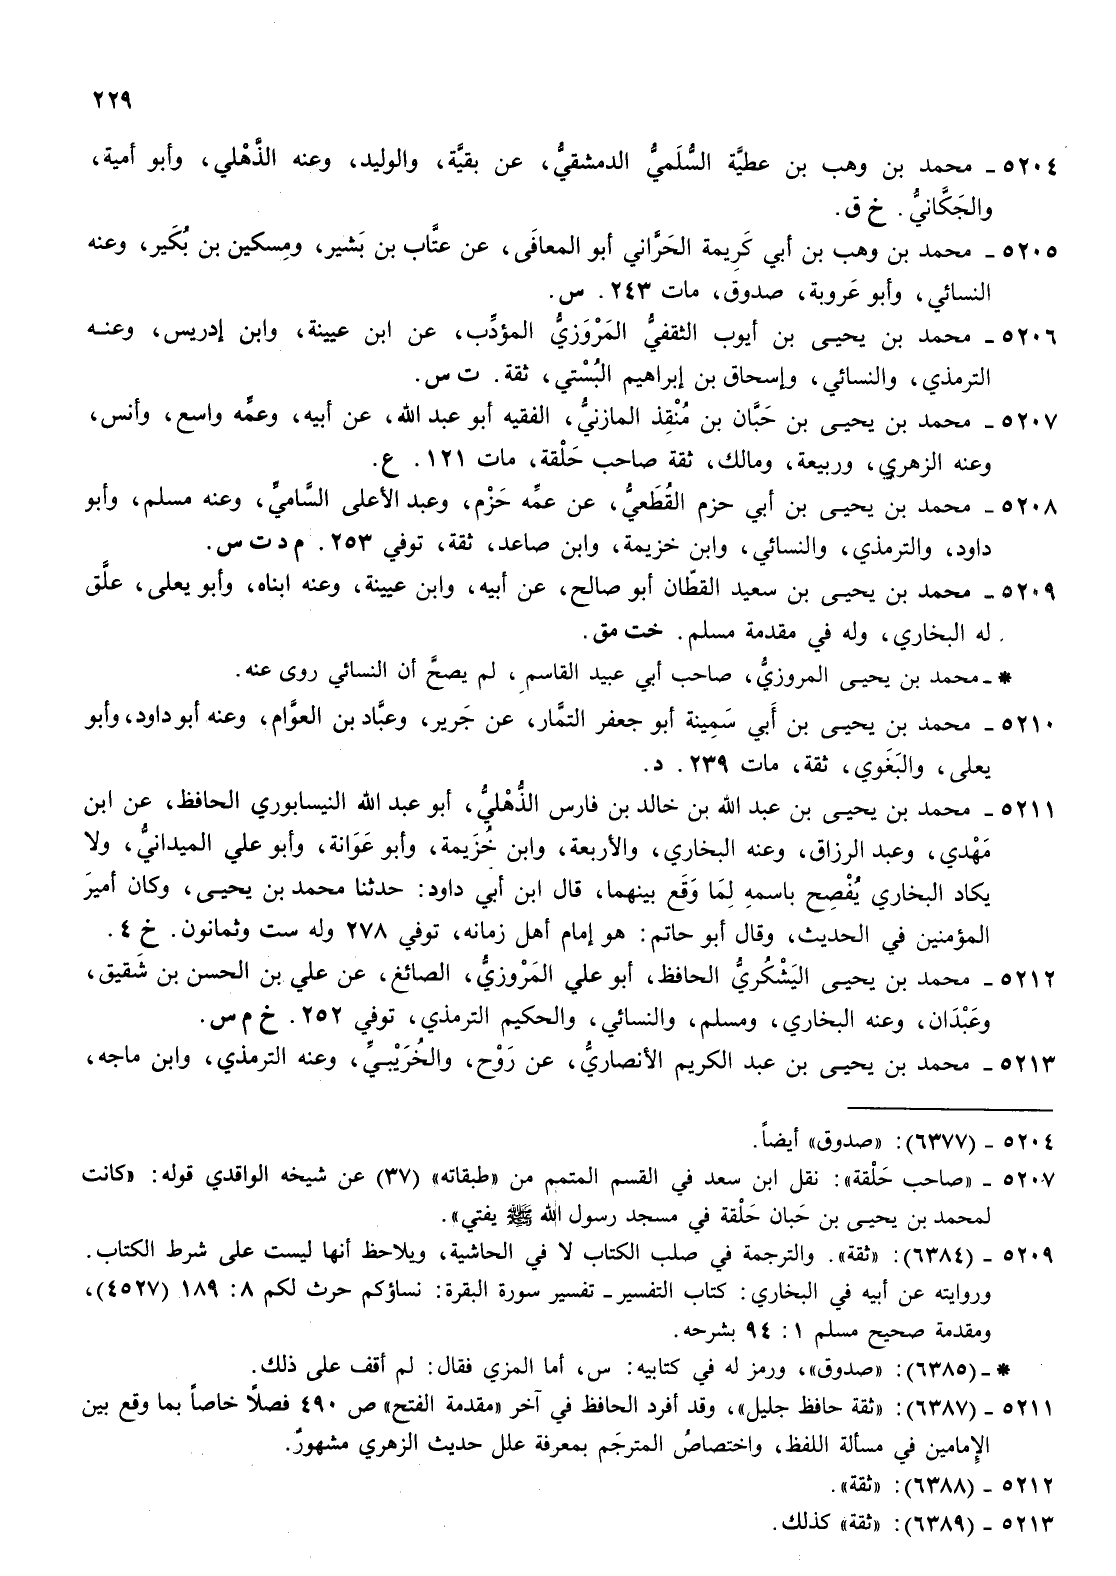 ٢٢٩
٥٢٠٤ ـ محمد بن وهب بن عطيَّة السُّلَميُّ الدمشقيُّ، عن بقيَّة، والوليد، وعنه الذَّهْلي، وأبو أمية،
والجَكَّانيُّ. خ ق.
٥٢٠٥ ـ محمد بن وهب بن أبي كَرِيمة الحَرَّاني أبو المعافَى، عن عتَّاب بن بَشير، ومِسكين بن بُكَير، وعنه
النسائي، وأبو عَروبة، صدوق، مات ٢٤٣. س.
٥٢٠٦ ـ محمد بن يحيى بن أيوب الثقفيُّ المَرْوَزيُّ المؤدِّب، عن ابن عيينة، وابن إدريس، وعنه
الترمذي، والنسائي، وإسحاق بن إبراهيم البُسْتي، ثقة. ت س.
٥٢٠٧ ـ محمد بن يحيى بن حَبَّان بن مُنْقِذ المازنيُّ، الفقيه أبو عبد الله، عن أبيه، وعمِّه واسع، وأنس،
وعنه الزهري، وربيعة، ومالك، ثقة صاحب حَلْقة، مات ١٢١. ع.
٥٢٠٨ ـ محمد بن يحيى بن أبي حزم القُطَعيُّ، عن عمِّه حَزْم، وعبد الأعلى السَّاميِّ، وعنه مسلم، وأبو
داود، والترمذي، والنسائي، وابن خزيمة، وابن صاعد، ثقة، توفي ٢٥٣. م د ت س.
٥٢٠٩ ـ محمد بن يحيى بن سعيد القطّان أبو صالح، عن أبيه، وابن عيينة، وعنه ابناه، وأبو يعلى، علَّق
له البخاري، وله في مقدمة مسلم. خت مق.
* ـ محمد بن يحيى المروزيُّ، صاحب أبي عبيد القاسم، لم يصحَّ أن النسائي روى عنه.
٥٢١٠ ـ محمد بن يحيى بن أَبي سَمِينة أبو جعفر التمَّار، عن جَرير، وعبَّاد بن العوَّام، وعنه أبو داود، وأبو
يعلى، والبَغَوي، ثقة، مات ٢٣٩. د.
٥٢١١ ـ محمد بن يحيى بن عبد الله بن خالد بن فارس الذُّهْليُّ، أبو عبد الله النيسابوري الحافظ، عن ابن
مَهْدي، وعبد الرزاق، وعنه البخاري، والأربعة، وابن خُزَيمة، وأبو عَوَانة، وأبو علي الميدانيُّ، ولا
يكاد البخاري يُفْصِح باسمهِ لِمَا وَقَع بينهما، قال ابن أبي داود: حدثنا محمد بن يحيى، وكان أميرَ
المؤمنين في الحديث، وقال أبو حاتم: هو إمام أهل زمانه، توفي ٢٧٨ وله ست وثمانون. خ ٤.
٥٢١٢ ـ محمد بن يحيى اليَشْكُريُّ الحافظ، أبو علي المَرْوزيُّ، الصائغ، عن علي بن الحسن بن شَقيق،
وعَبْدَان، وعنه البخاري، ومسلم، والنسائي، والحكيم الترمذي، توفي ٢٥٢. خ م س.
٥٢١٣ ـ محمد بن يحيى بن عبد الكريم الأنصاريُّ، عن رَوْح، والخُرَيْبيِّ، وعنه الترمذي، وابن ماجه،
٥٢٠٤ ـ (٦٣٧٧): «صدوق» أيضاً.
٥٢٠٧ ـ «صاحب حَلْقة»: نقل ابن سعد في القسم المتمم من «طبقاته» (٣٧) عن شيخه الواقدي قوله: «كانت
لمحمد بن يحيى بن حَبان حَلْقة في مسجد رسول الله ﷺ يفتي».
٥٢٠٩ ـ (٦٣٨٤): «ثقة». والترجمة في صلب الكتاب لا في الحاشية، ويلاحظ أنها ليست على شرط الكتاب.
وروايته عن أبيه في البخاري: كتاب التفسير ـ تفسير سورة البقرة: نساؤكم حرث لكم ٨: ١٨٩ (٤٥٢٧)،
ومقدمة صحيح مسلم ١: ٩٤ بشرحه.
* ـ (٦٣٨٥): «صدوق»، ورمز له في كتابيه: س، أما المزي فقال: لم أقف على ذلك.
٥٢١١ ـ (٦٣٨٧): «ثقة حافظ جليل»، وقد أفرد الحافظ في آخر «مقدمة الفتح» ص ٤٩٠ فصلاً خاصاً بما وقع بين
الإمامين في مسألة اللفظ، واختصاصُ المترجَم بمعرفة علل حديث الزهري مشهورٌ.
٥٢١٢ ـ (٦٣٨٨): «ثقة».
٥٢١٣ ـ (٦٣٨٩): «ثقة» كذلك.